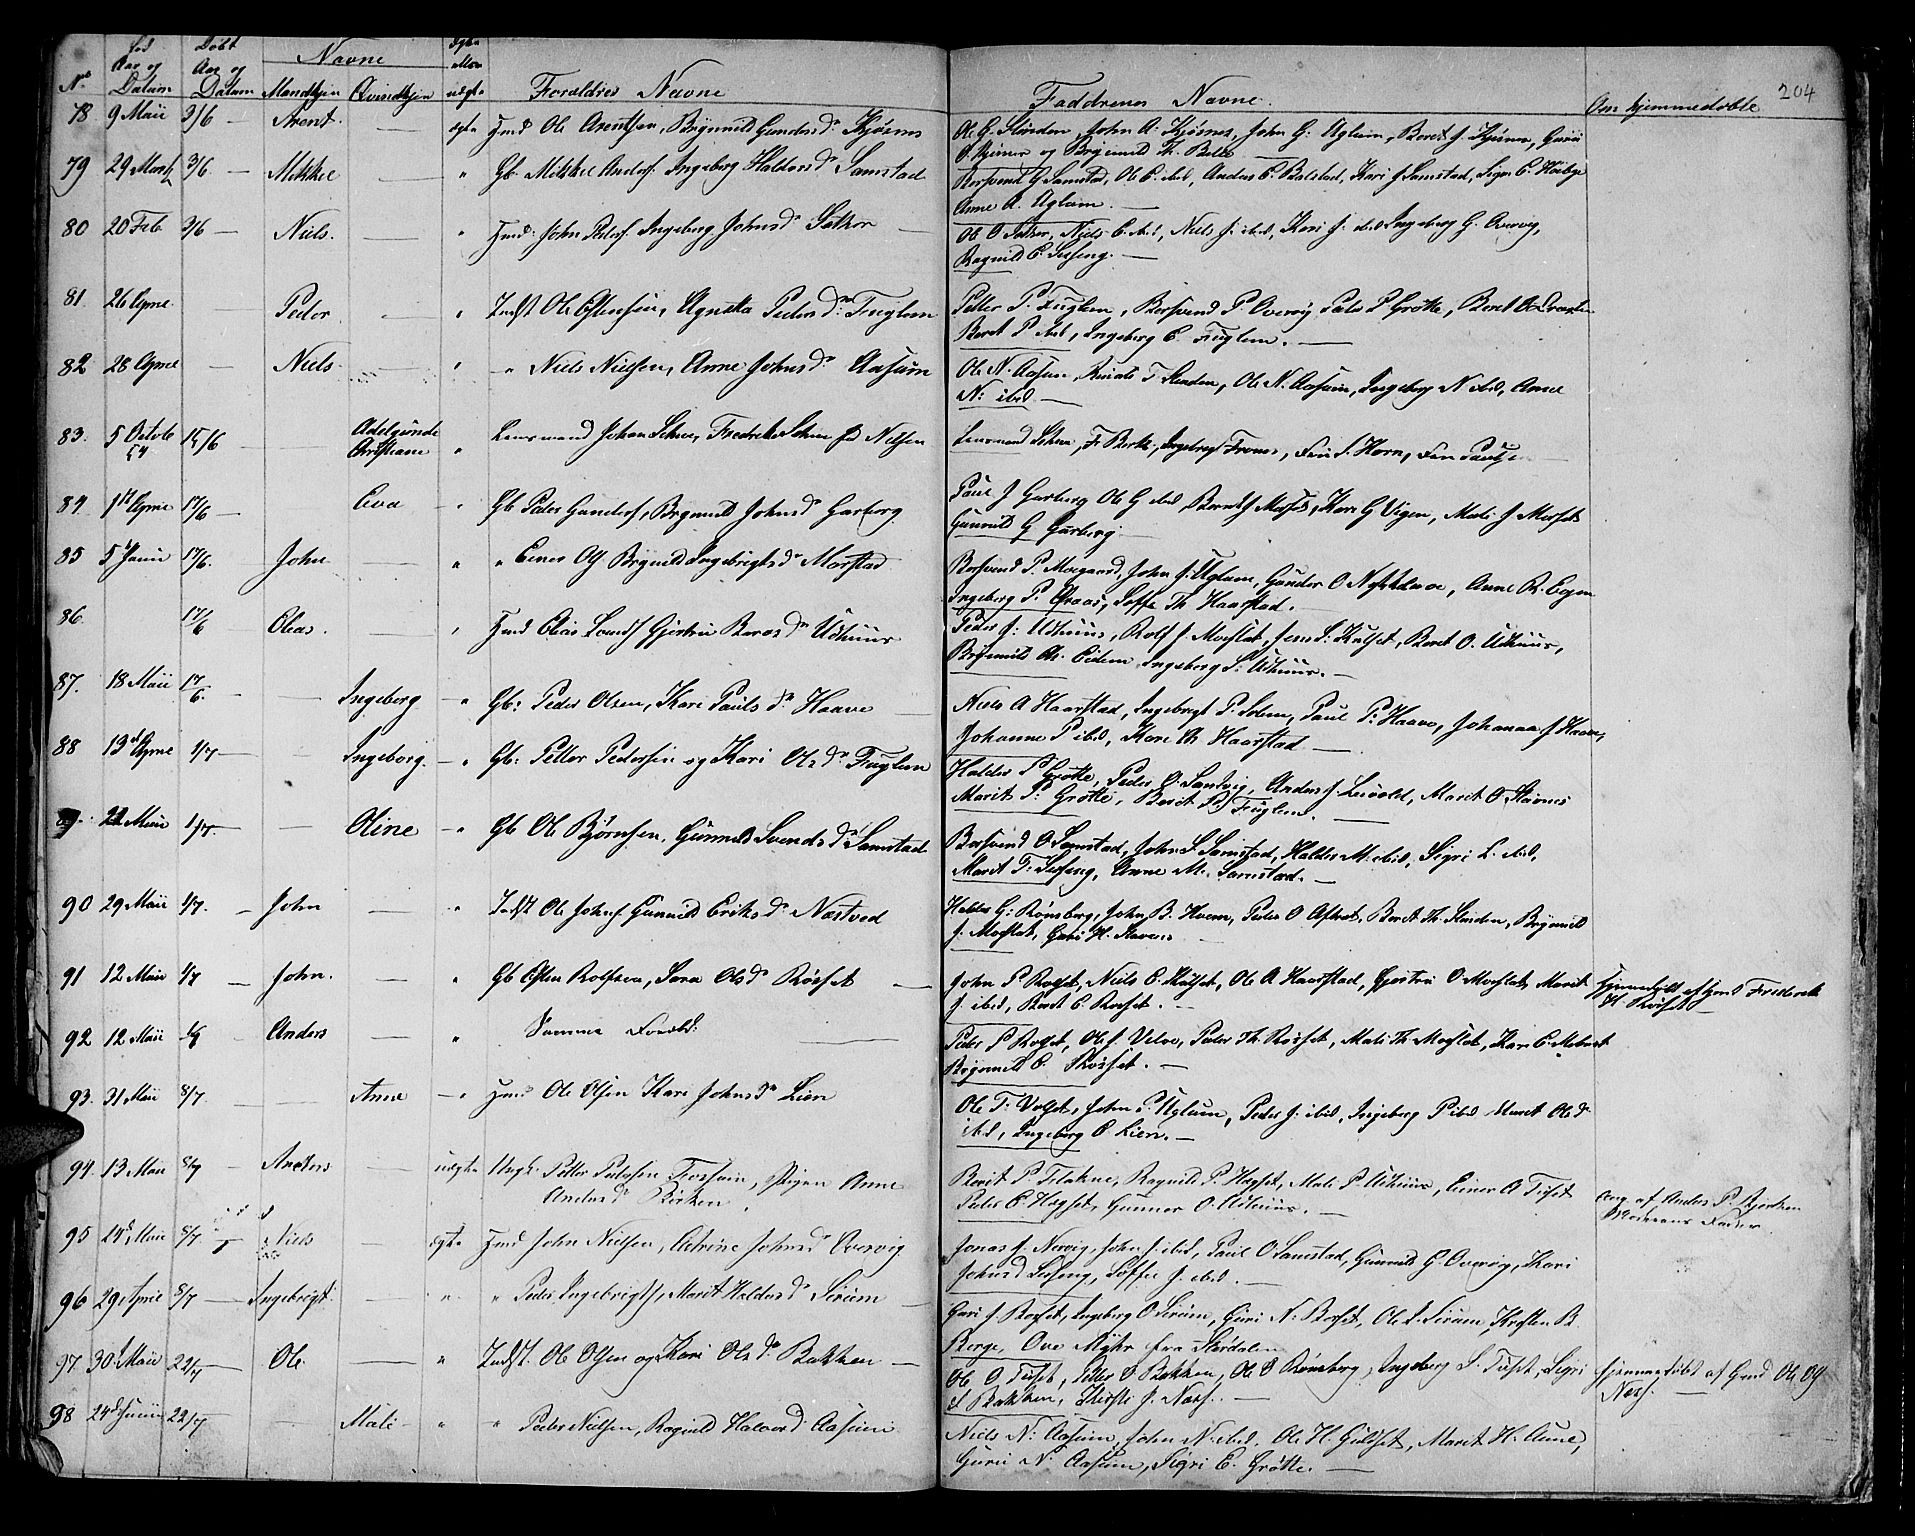 204
Nr. Født Aar og Datum Døbt Aar og Datum Navne Mandkjøn Qvindekjøn ægte eller uægte Forældres Navne Faddrenes Navne. Om hjemmedøbte
78 9 Maii 3/6 — Arent. — ægte Hmd Ole Arentsen, Brynnild Gundersd. Kjøsnes Ole G. Slinden, John A. Kjøsnes, John G. Uglem, Beret J. Kjøsnes, Guru
O. Kjøsnes og Brynnild Th. Balstad
79 29 Marts 3/6. — Mikkel — " Gb. Mikkel Andersen Ingeborg Haldorsd. Samstad Bersvend G Samstad, Ole E. ibid, Anders E. Balstad, Kari J Samstad, Sigri E. Høiby
Anne A. Uglem. —
80 20 Feb 3/6 — Niels. — " Hmd: John Pedersen Ingeborg Johnsd. Sether — Ole O Sether, Niels E. ibid, Niels J. ibid, Kari J. ibid Ingeborg G. Overvig,
Ragnild E. Selseng. —
81 26 April — Peder. — " Indst Ole Estensen, Agnetha Pedersd. Fuglem Petter P. Fuglem, Bersvend P. Overvig Peder P Grøtte, Beret
Beret P ibid, Ingeborg E. Fuglem. —
82 28 April — Niels — " " Niels Nielsen, Anne Johnsd. Aasum Ole N. Aasum, T. Slinden, Ole N. Aasum, Ingeborg N ibid, Anne
N: ibid —
83. 5 Octob 54 15/6 — Adelgunde Christiane " Lensmand Johan Lehn, Fredrikke Lehn fød Nelsen Lensmand Lehn, F. Ingebregt Fru S. Horn,
84 1st April 17/6 — Eva — " Gb Peder Gunders., Brynnild Johnsd. Garberg Paul J Garberg Ole G ibid Bernt J Morset, Kari G Vigen, Mali J Morset
Gunnild G Garberg —
85 5 Junii 17/6. — John — " " Einer Ols. Brynnild Ingebrigtsd. Marstad Bersvend P. Moegaard, John J. Uglem, Gunder O Anne R. Evjen
Ingeberg P. Draas, Th. Haarstad. —
86. 17/6 — Elias. — " Hmd Elias Gjertru Udhuus Peder J: Udhuus, Rolf J. Morset, Jens S: Kulset, Beret O. Udhuus,
Brynnild Ole. Eidem Ingeborg S. Udhuus. —
87. 18 Maii 17/6. — — Ingeborg — " Gb: Peder Olsen, Kari Paulsd. Haave — Niels A Haarstad, Ingebregt P. Solem, Paul P. Haave, Johanna J Haave,
Johanne P ibid, Kari Th Haarstad —
88 13d April 1/7 — Ingeborg. — " Gb: Petter Pedersen og Kari Olsd. Fuglem Haldor P. Grøtte, Peder O. Sandvig, Anders J. Marit O Stavnes
Marit P. Grøtte, Beret P. Fuglem. —
89. 22 Maii 1/7. — — Oline — " Gb Ole Bjørnsen, Gunnild Svendsd. Samstad Bersvend O Samstad, John S. Samstad, Haldor M. ibid, Sigri L. ibid,
Marit T. Selseng, Anne M. Samstad. —
90 29 Maii 1/7. — John — " Indst Ole Johns. Gunnild Eriksd. Næstved Haldor G: Rønsberg, John B. Hvem, Peder O Aftret, Beret Th. Slinden, Brynnild
J. Morset, Guri H.
91 12 Maii 1/7 — John. — " Gb Esten Rolfsen, Sara Olsd. Rosset — John P Rosset, Niels E. Kulset, Ole A Haarstad, Gjertru O Morset, Marit Hjemmedøbt af Frederik
J. ibid, Beret E Rosset. — H. Røsset —
92 12 Maii 1/7 — Anders — " Samme Foreld. — Peder P Rosset, Ole J. Velve, Peder Th. Røsset, Mali Th Morset, Kari E.
Brynnild E. Røsset. —
93. 31 Maii 8/7 — — Anne — " Hmd Ole Olsen Kari Johnsd. Lien Ole T: John P. Uglem, Peder J. ibid, Ingeborg P ibid Marit Olsd.
ibid, Ingeborg O. Lien. —
94. 13 Maii 8/7 — Anders — uægte Ungk: Petter Pedersen Pigen Anne Beret P. Ragnild P. Mali P Udhuus, Einer A. Tuset Ang. af Anders P. Bjerken
Andersd. Peder E Gunner O. Udhuus. — Moderens Fader
95 24d Maii 8/7 Niels — ægte Hmd John Nielsen, Catrine Johnsd. Overvig Jonas J. Nervig, John J. ibid, Paul O Samstad, Gunnild G. Overvig, Kari
Johnsd Selseng, J. ibid. —
96 29 April 8/7 — Ingebrigt. — " " Peder Ingebrigts, Marit Haldorsd. Serum — Guri J Rosset, Ingeborg O Serum, Guri N. Rosset, Ole I. Serum, Kirsten B
Berge, Ove fra Størdalen
97 30. Maii 22/7 — Ole — " Indst. Ole Olsen og Kari Olsd. Bakken — Ole O. Tuset, Peder O Bakken, Ole O Rønsberg, Ingeborg S. Tuset, Sigri Hjemmedøbt af Gmd Ole
S Bakken, Kirsti J. Næss. — Næss. —
98 24d Junii 22/7 — — Mali — " " Peder Nielsen, Ragnild Halvord. Aasum Niels N: Aasum, John N: ibid, Ole H. Guldset, Marit H. Aune,
Guru N. Aasum, Sigri E. Grøtte. —